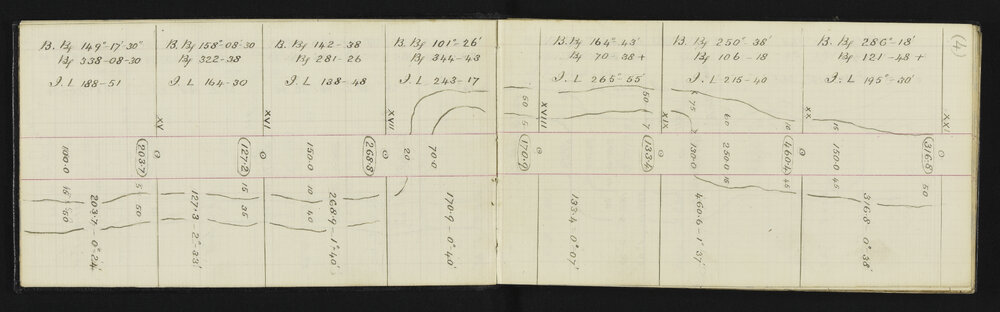 B. Bg 149°-17'-30"
Bg 338-08-30
I. L 188-51
B. Bg 158°-08'-30
Bg 322-38
I. L 164-30
B. Bg 142-38
Bg 281-26
I. L 138-48
B. Bg 101°-26'
Bg 344-43
I. L 243-17
B. Bg 164°-43'
Bg 70-38+
I. L 265°-55'
B. Bg 250°-38'
Bg 106-18
I. L 215-40
B. Bg 286°-18'
Bg 121-48+
I. L 195°-30'
(4)
XV
XVI
XVII
XVIII
XIX
XX
XXI
50
5
50
7
75
7
60
10
15
100.0
203.7
127.2
150.0
268.8
20
70.0
170.9
133.4
130.0
250.0
460.4
150.0
316.8
15
50
5
50
15
35
10
40
15
45
45
50
203.7-0°-24'
127.3-2°-33'
268.9-1°-40'
170.9-0°-40'
133.4-0°-07'
460.6-1°-37'
316.8-0°-38'